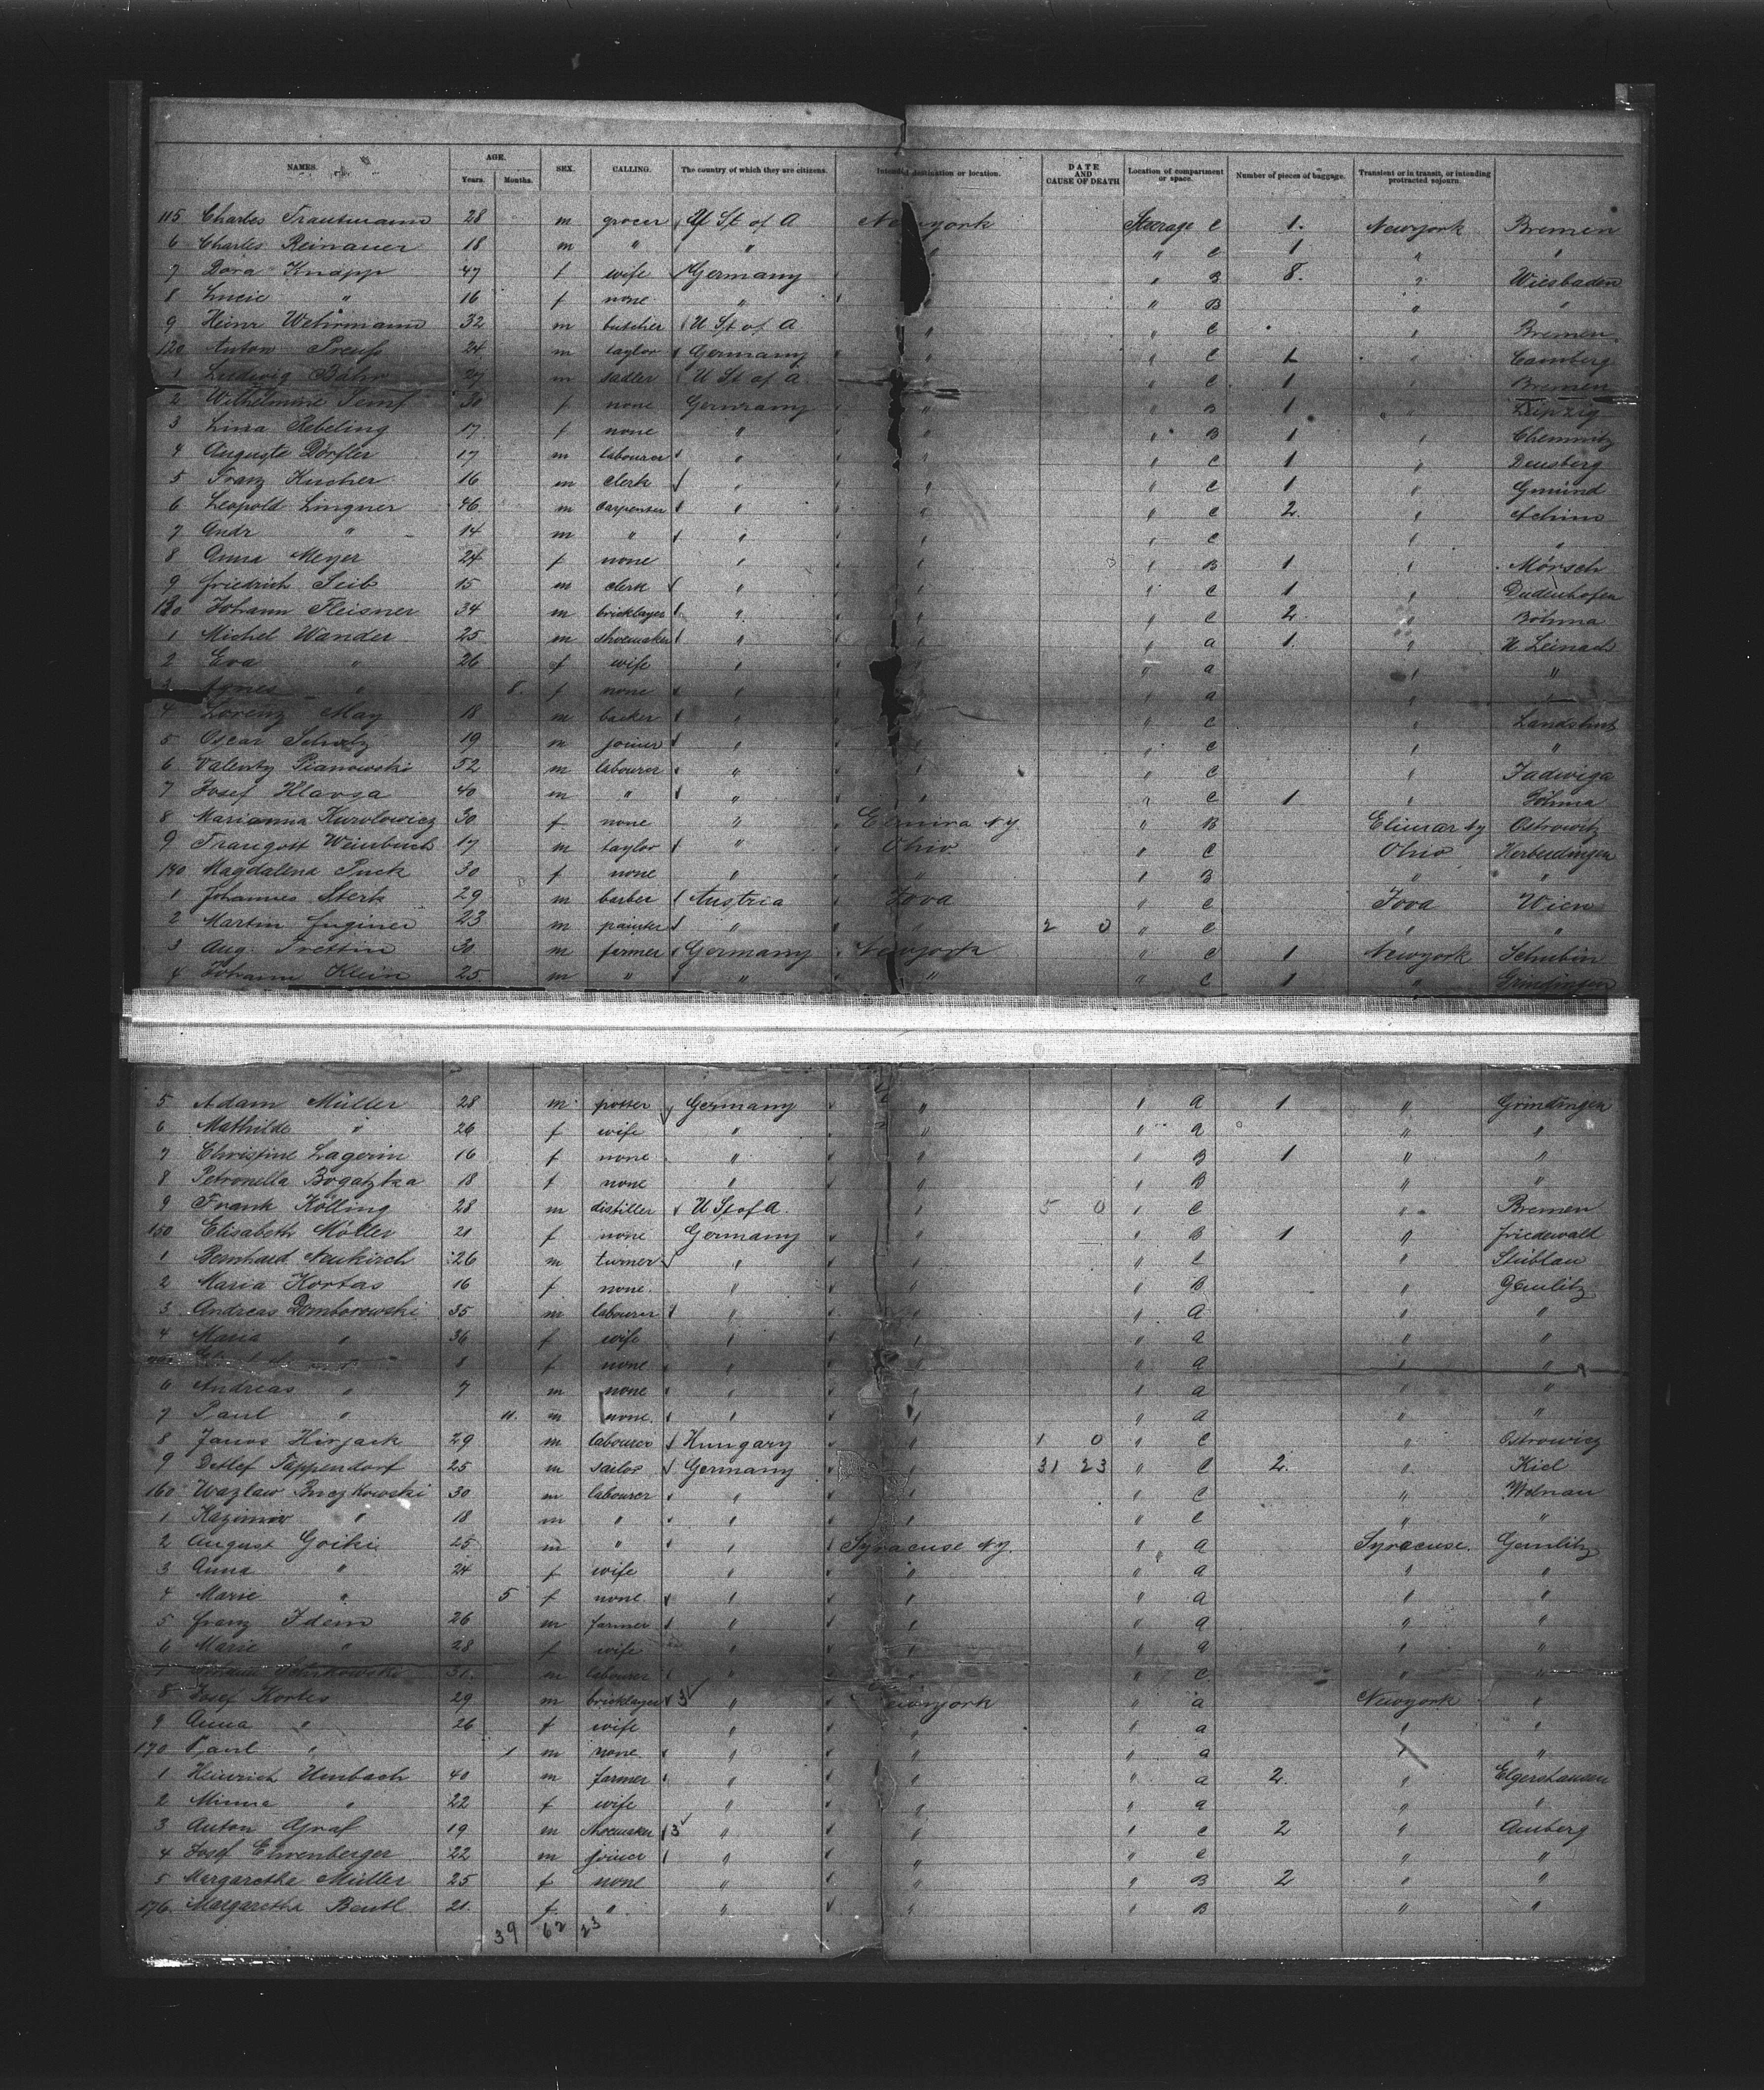 NAMES. AGE. Years. Months. SEX. CALLING. The country of which they are citizens. Intended destination or location. DATE AND CAUSE OF DEATH Location of compartment or space. Number of pieces of baggage. Transient or in transit, or intending protracted sojourn.
115 Charles Trautmann 28 m grocer U St of A Newyork Steerage C 1. Newyork Bremen
6 Charles Reinauer 18 m " " " " C 1 " "
7 Dora Knapp 47 f wife Germany " " B 8. " Wiesbaden
8 Lucie " 16 f none " " " B " "
9 Heinr Wehrmann 32 m butcher U St of A " " C " Bremen
120 Anton Preuß 24 m taylor Germany " " C 1 " Camberg
1 Ludwig Bahr 27 m sadler U St of A " " C 1 " Bremen
2 Wilhelmine Senf 30 f none Germany " " B 1 " Leipzig
3 Lina Rebeling 17 f none " " " B 1 " Chemnitz
4 Auguste Dörfler 17 m labourer " " " C 1 " Deusberg
5 Franz Kucher 16 m clerk " " " C 1 " Gmünd
6 Leopold Lingner 46 m carpenter " " " C 2. " Achim
7 Andr " 14 m " " " " C " "
8 Anna Meyer 24 f none " " " B 1 " Mörsch
9 Friedrich Seib 15 m clerk " " " C 1 " Dudenhofen
130 Johann Fleisner 34 m bricklayer " " " C 2. " Böhma
1 Michel Wander 25 m shoemaker " " " a 1. " U Leinach
2 Eva " 26 f wife " " " a " "
3 Agnes " 8. f none " " " a " "
4 Lorenz May 18 m backer " " " C " Landshut
5 Oscar Scholz 19 m joiner " " " C " "
6 Valenty Pianowski 52 m labourer " " " C " Jadwiga
7 Josef Klavsa 40 m " " " " C 1 " Böhma
8 Marianna Kurolowicz 30 f none " Elmira NY " B Elmira Ny Ostrowitz
9 Traugott Weinbuch 17 m taylor " Ohio " C Ohio Herbertingen
140 Magdalena Puck 30 f none " " " B " "
1 Johannes Sterk 29 m barber Austria Iova " C Iova Wien
2 Martin Juginer 23 m painter " " 2 0 " C " "
3 Aug. Trettin 30 m farmer Germany Newyork " C 1 Newyork Schubin
4 Johann Klein 25 m " " " " C 1 " Grindingen
5 Adam Müller 28 m potter Germany " " a 1 " Grindingen
6 Mathilde " 26 f wife " " " a " "
7 Christine Lagerin 16 f none " " " B 1 " "
8 Petronella Bogatzka 18 f none " " " B " "
9 Frank Kölling 28 m distiller U St of A. " 5 0 " C " Bremen
150 Elisabeth Möller 21 f none Germany " " B 1 " Friedewald
1 Bernhard Neukirch 26 m turner " " " C " Stüblau
2 Maria Kortas 16 f none " " " B " Gemlitz
3 Andreas Domborowski 35 m labourer " " " a " "
4 Maria " 36 f wife " " " a " "
" 8 f none " " " a " "
6 Andreas " 7 m none " " " a " "
7 Paul " 11. m none. " " " a " "
8 Janos Hirjack 29 m labourer Hungary " 1 0 " C " Ostrowicz
9 Detlef Tappendorf 25 m sailor Germany " 31 23 " C 2. " Kiel
160 Wazlaw Buczkowski 30 m labourer " " " C " Wolnau
1 Kazimir " 18 m " " " " C " "
2 August Goiki 25 m " " Syracuse N.y. " a Syracuse. Gemlitz
3 Anna " 24 f wife " " " a " "
4 Marie " 5 f none " " " a " "
5 Franz Idem 26 m farmer " " " a " "
6 Marie " 28 f wife " " " a " "
31. m labourer " " " C " "
8 Josef Kortes 29 m bricklayer 3 " Newyork " a Newyork "
9 Anna " 26 f wife " " " a " "
170 Paul " 1 m none " " " a " "
1 Heinrich Umbach 40 m farmer " " " a 2. " Elgershausen
2 Minna " 22 f wife " " " a " "
3 Anton Graf 19 m shoemaker 3 " " " C 2 " Amberg
4 Josef Ehrenberger 22 m joiner " " " C " "
5 Margaretha Müller 25 f none " " " B 2 " "
176. Margaretha Beutl 21 f " " " " B " "
39 62 23